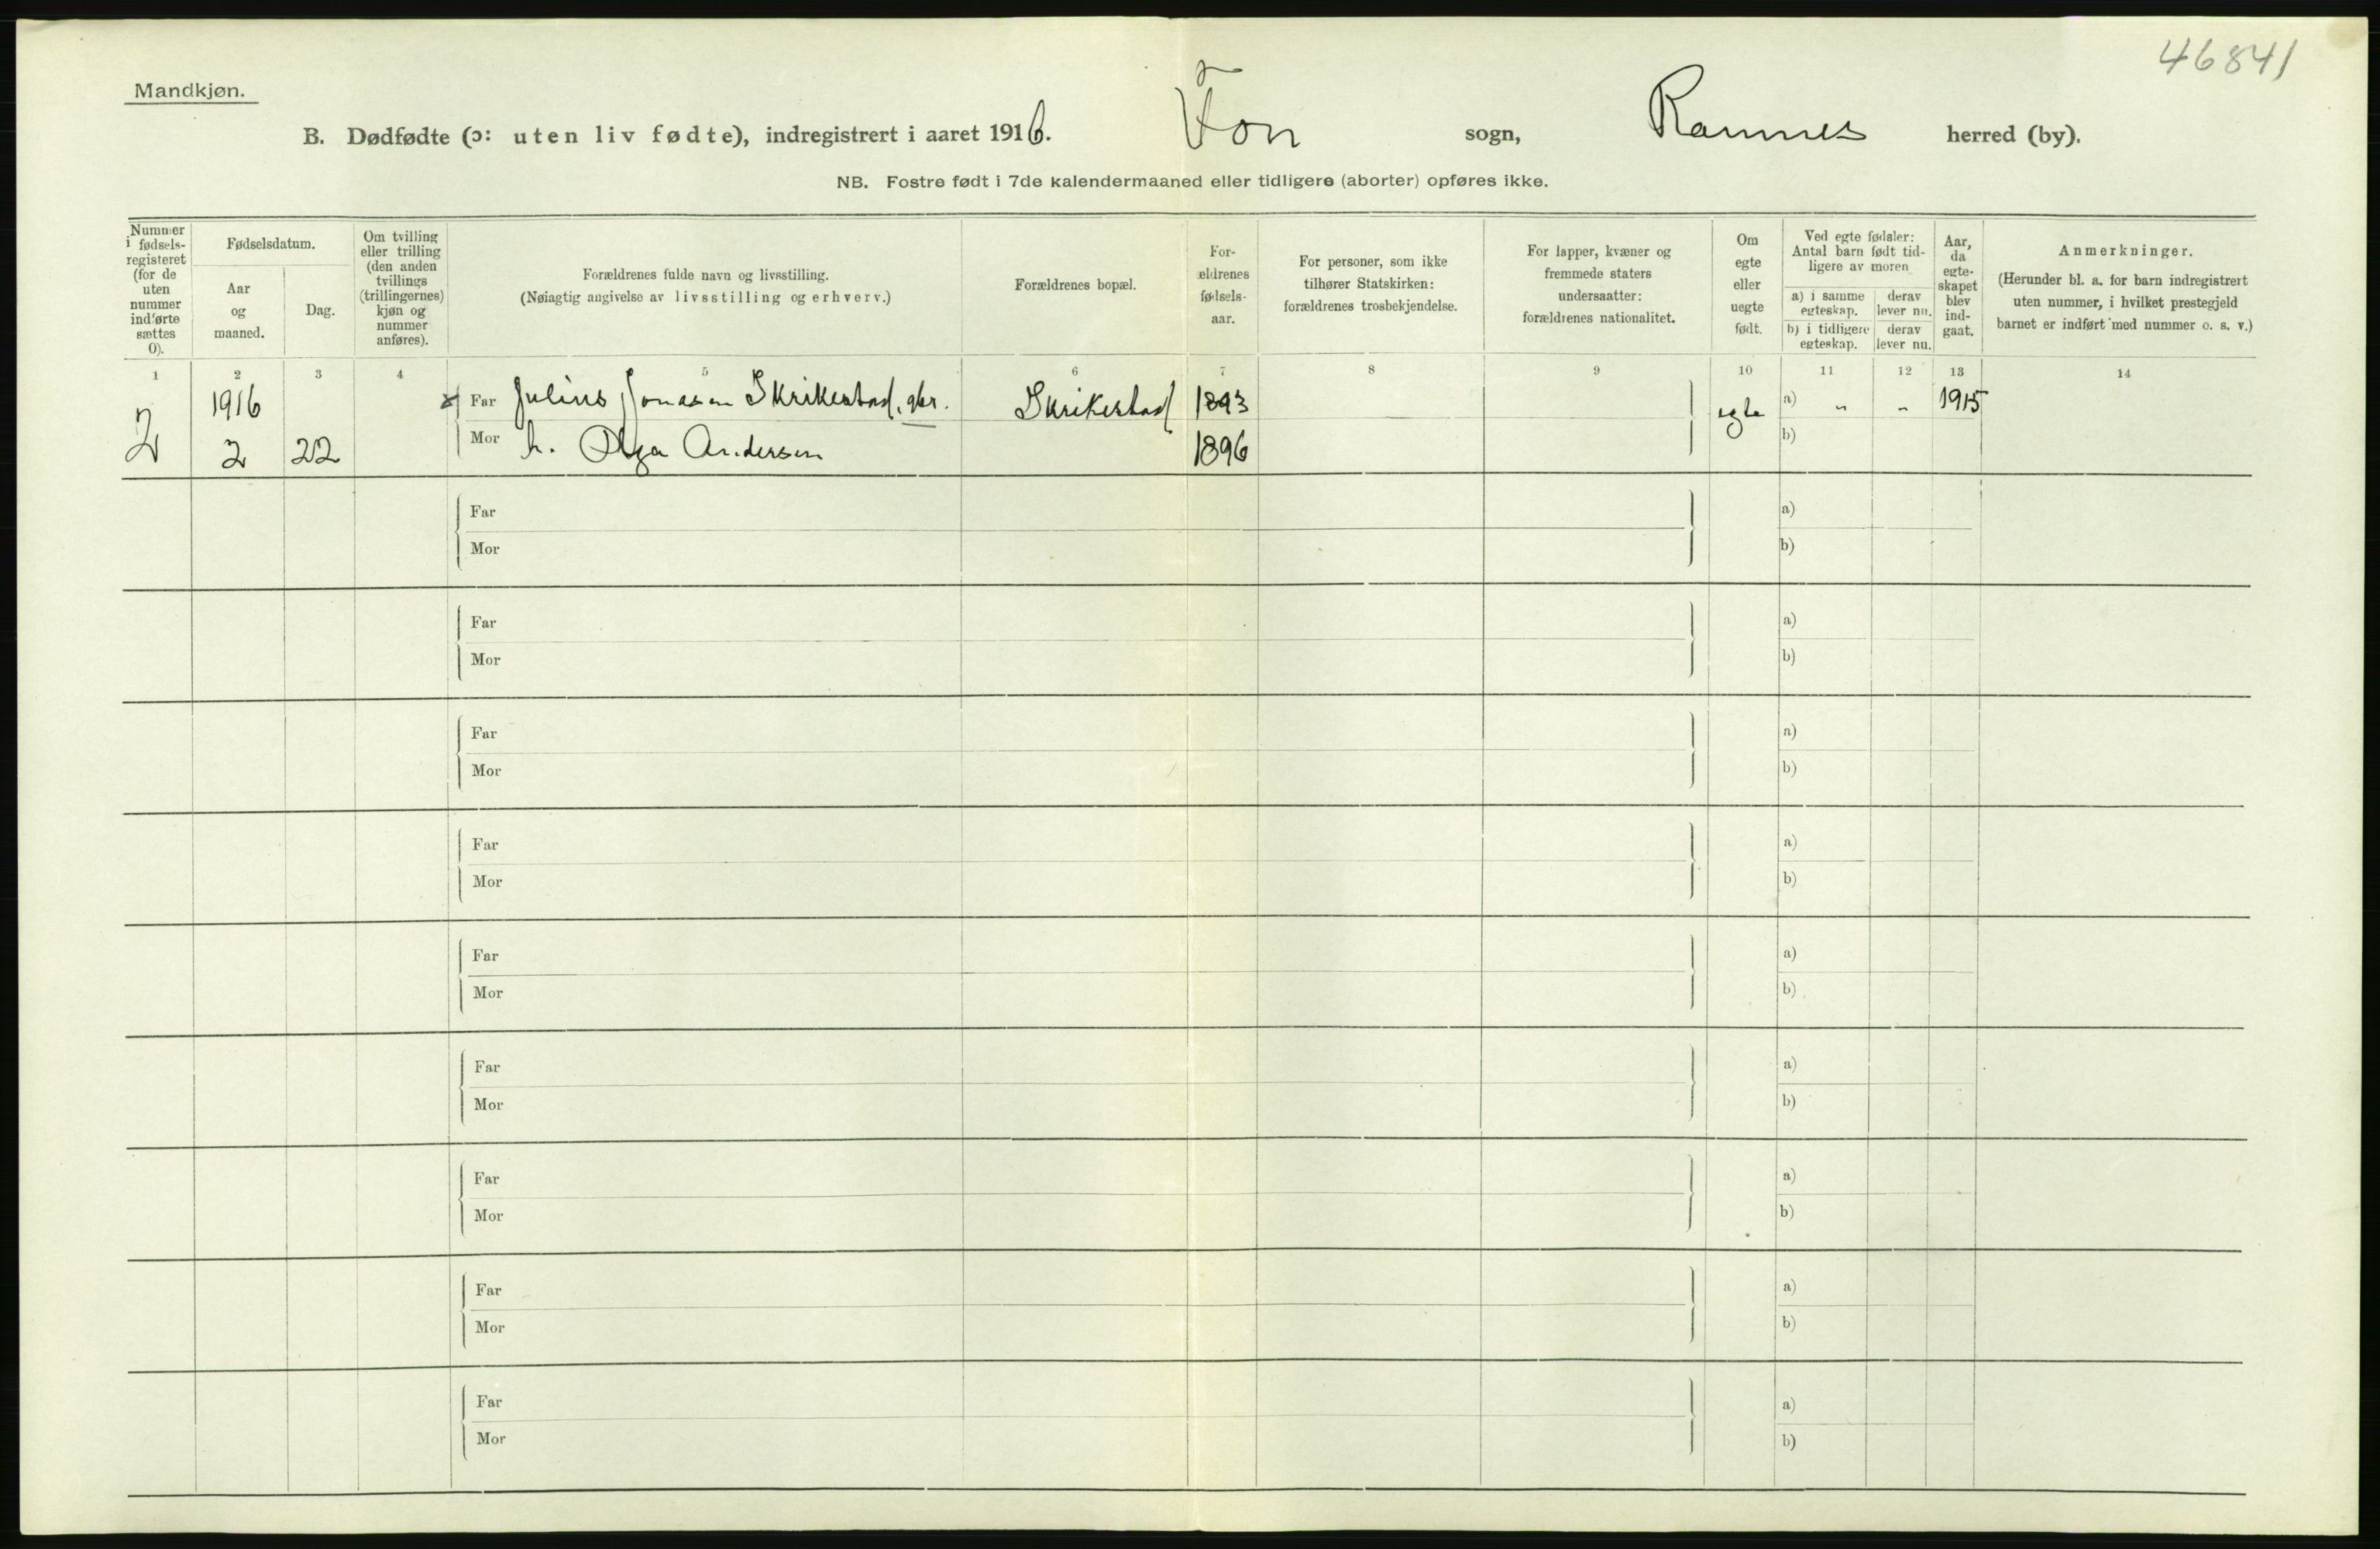 46841
Mandkjøn.
B. Dødfødte (ɔ: uten liv fødte), indregistrert i aaret 1916. Fon sogn, Ramnes herred (by).
NB. Fostre født i 7de kalendermaaned eller tidligere (aborter) opføres ikke.
Nummer i fødsels-registeret (for de uten nummer indførte sættes 0).
Fødselsdatum.
Aar og maaned.
Dag.
Om tvilling eller trilling (den anden tvillings (trillingernes) kjøn og nummer anføres).
Forældrenes fulde navn og livsstilling.
(Nøiagtig angivelse av livsstilling og erhverv.)
Forældrenes bopæl.
For-ældrenes fødsels-aar.
For personer, som ikke tilhører Statskirken: forældrenes trosbekjendelse.
For lapper, kvæner og fremmede staters undersaatter: forældrenes nationalitet.
Om egte eller uegte født.
Ved egte fødsler: Antal barn født tid-ligere av moren
a) i samme egteskap. derav lever nu.
b) i tidligere egteskap. derav lever nu.
Aar, da egte-skapet blev ind-gaat.
Anmerkninger.
(Herunder bl. a. for barn indregistrert uten nummer, i hvilket prestegjeld barnet er indført med nummer o. s. v.)
1 2 3 4 5 6 7 8 9 10 11 12 13 14
1916 Far Julius Jonasen Skrikestad, gbr. Skrikestad 1893 egte a) " " 1915
2 2 22 Mor h. Olga Andersen 1896 b)
Far a)
Mor b)
Far a)
Mor b)
Far a)
Mor b)
Far a)
Mor b)
Far a)
Mor b)
Far a)
Mor b)
Far a)
Mor b)
Far a)
Mor b)
Far a)
Mor b)